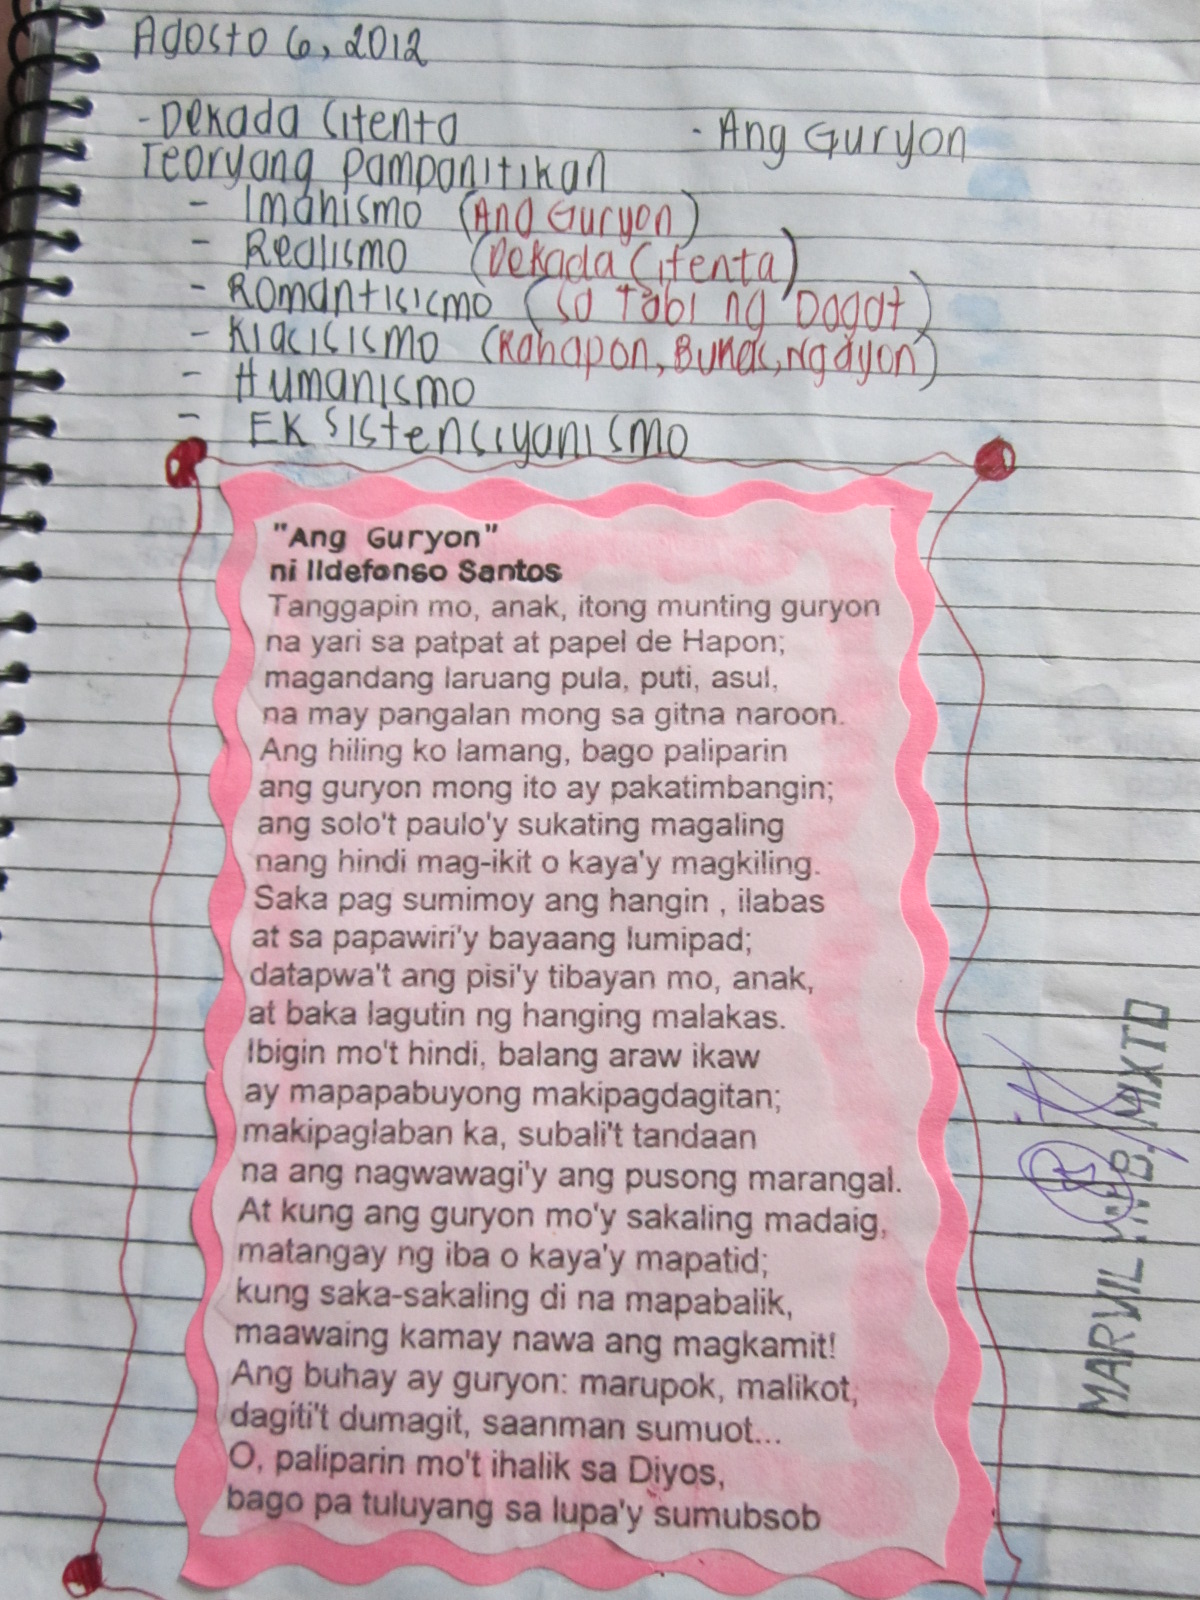 Agosto 6, 2012
- Dekada Sitenta
- Ang Guryon
Teoryang pampanitikan
- Imahismo (Ang Guryon)
- Realismo (Dekada Sitenta)
- Romantisismo (Sa Tabi ng Dagat)
- Klasisismo (Kahapon, Bukas, Ngayon)
- Humanismo
- Eksistensiyanismo
"Ang Guryon"
ni Ildefonso Santos
Tanggapin mo, anak, itong munting guryon
na yari sa patpat at papel de Hapon;
magandang laruang pula, puti, asul,
na may pangalan mong sa gitna naroon.
Ang hiling ko lamang, bago paliparin
ang guryon mong ito ay pakatimbangin;
ang solo't paulo'y sukating magaling
nang hindi mag-ikit o kaya'y magkiling.
Saka pag sumimoy ang hangin , ilabas
at sa papawiri'y bayaang lumipad;
datapwa't ang pisi'y tibayan mo, anak,
at baka lagutin ng hanging malakas.
Ibigin mo't hindi, balang araw ikaw
ay mapapabuyong makipagdagitan;
makipaglaban ka, subali't tandaan
na ang nagwawagi'y ang pusong marangal.
At kung ang guryon mo'y sakaling madaig,
matangay ng iba o kaya'y mapatid;
kung saka-sakaling di na mapabalik,
maawaing kamay nawa ang magkamit!
Ang buhay ay guryon: marupok, malikot,
dagiti't dumagit, saanman sumuot...
O, paliparin mo't ihalik sa Diyos,
bago pa tuluyang sa lupa'y sumubsob
MARVIL